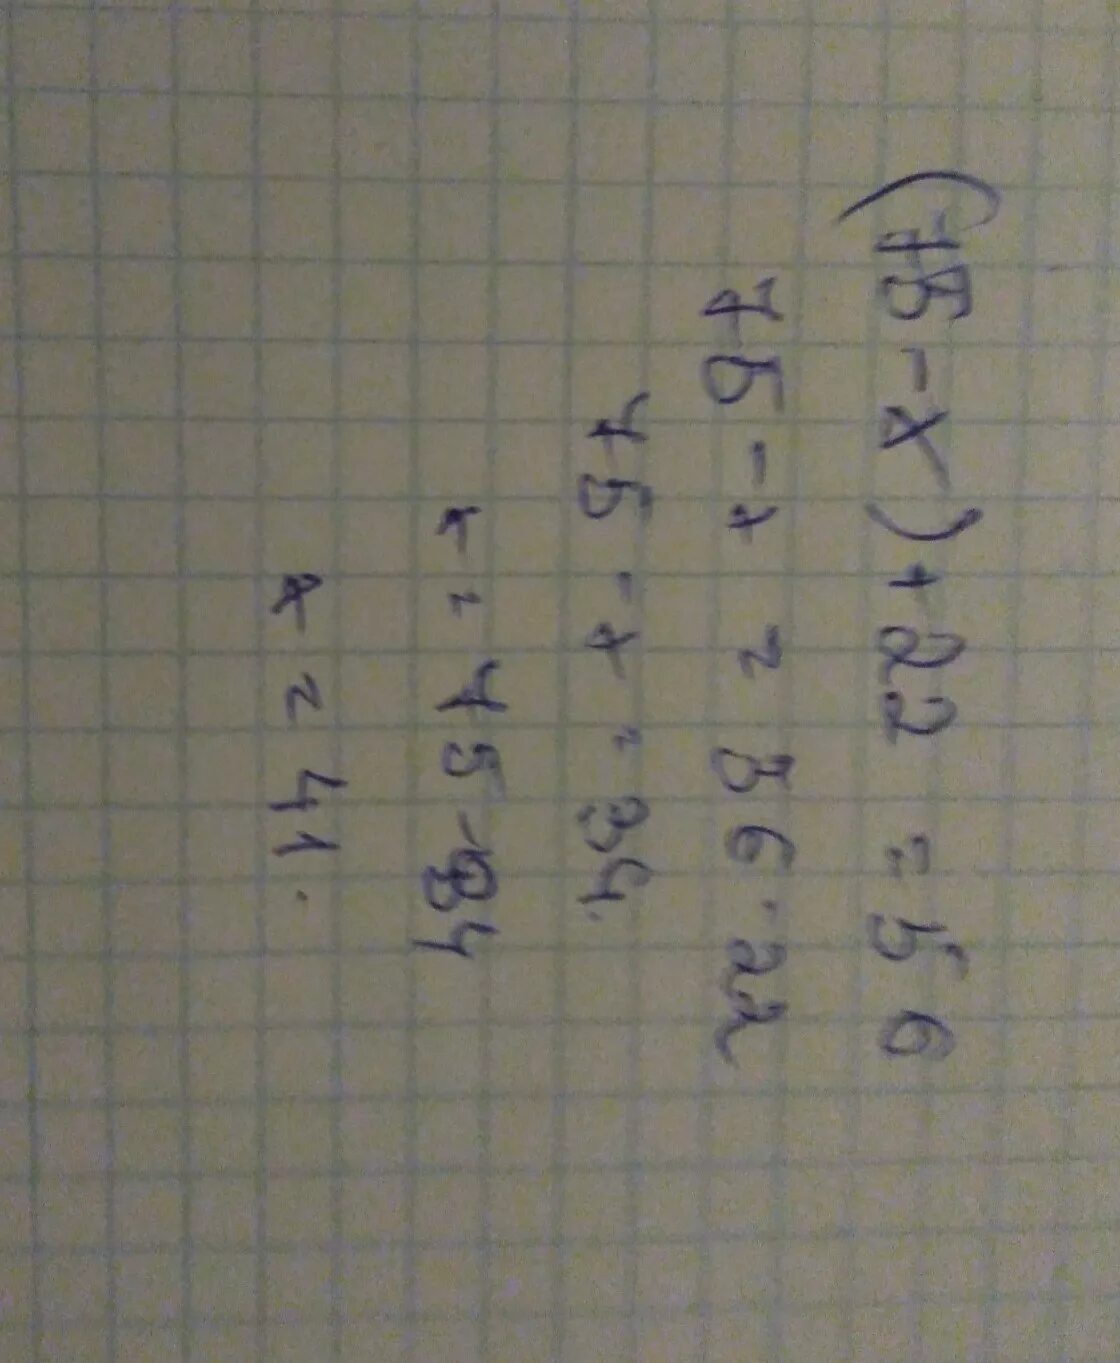 (75-x)+22=56
75-x=56-22
75-x=34.
x=75-34
x=41.